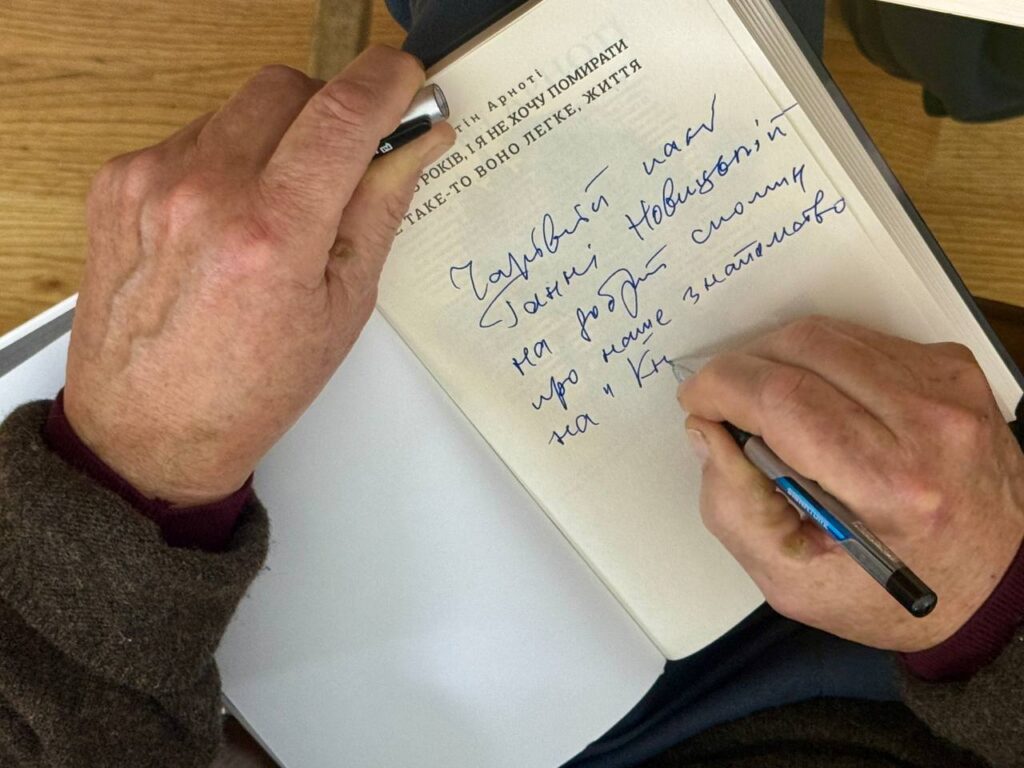 тін Арноті
РОКІВ, І Я НЕ ХОЧУ ПОМИРАТИ
ТАКЕ-ТО ВОНО ЛЕГКЕ, ЖИТТЯ
Чарівній пані
Ганні Новицькій
на добрий спомин
про наше знайомство
на "Кн